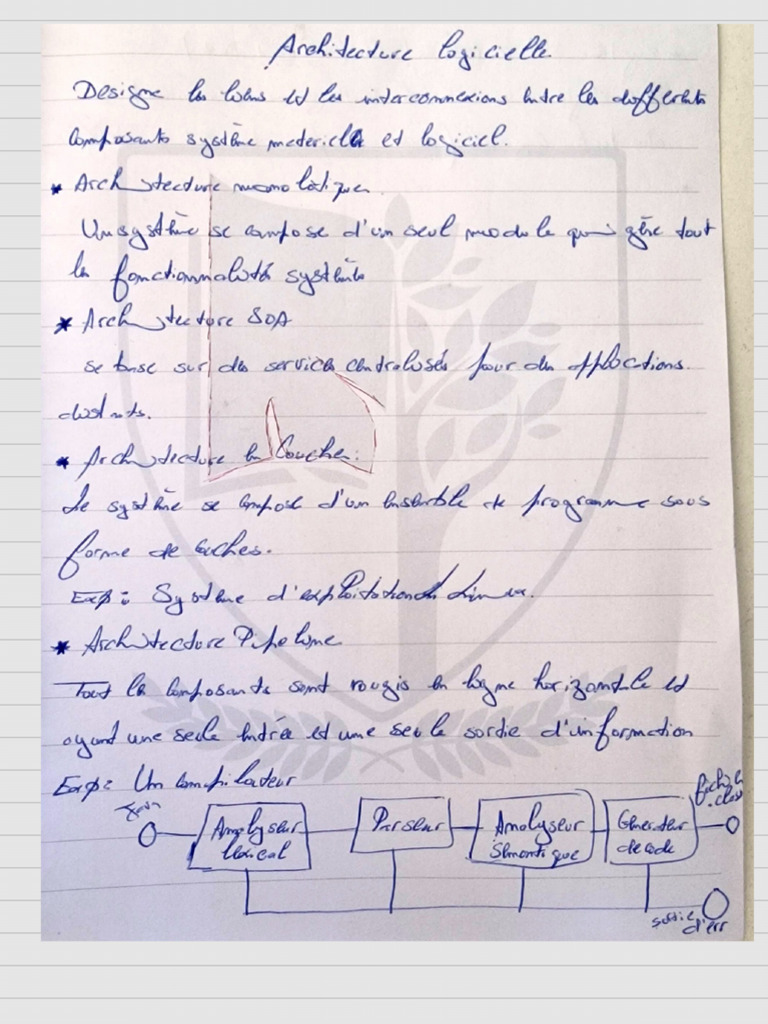 Architecture logicielle
Designe les liens et les interconnexions entre les différents
composants système materielle et logiciel.
* Architecture monolotique.
Un système se compose d'un seul module qui gère tout
les fonctionnalités système
* Architecture SOA
se base sur des services centralisés pour des applications
distants.
* Architecture en Couches :
Le système se compose d'un ensemble de programme sous
forme de couches.
Exp : Système d'exploitation Linux.
* Architecture Pipeline
Tout les composants sont rangés en ligne horizontale et
ayant une seule entrée et une seule sortie d'information
Exp : Un compilateur
fichier
.class
Analyseur
lexical
Parseur
Analyseur
Sémantique
Générateur
de code
sortie
d'err